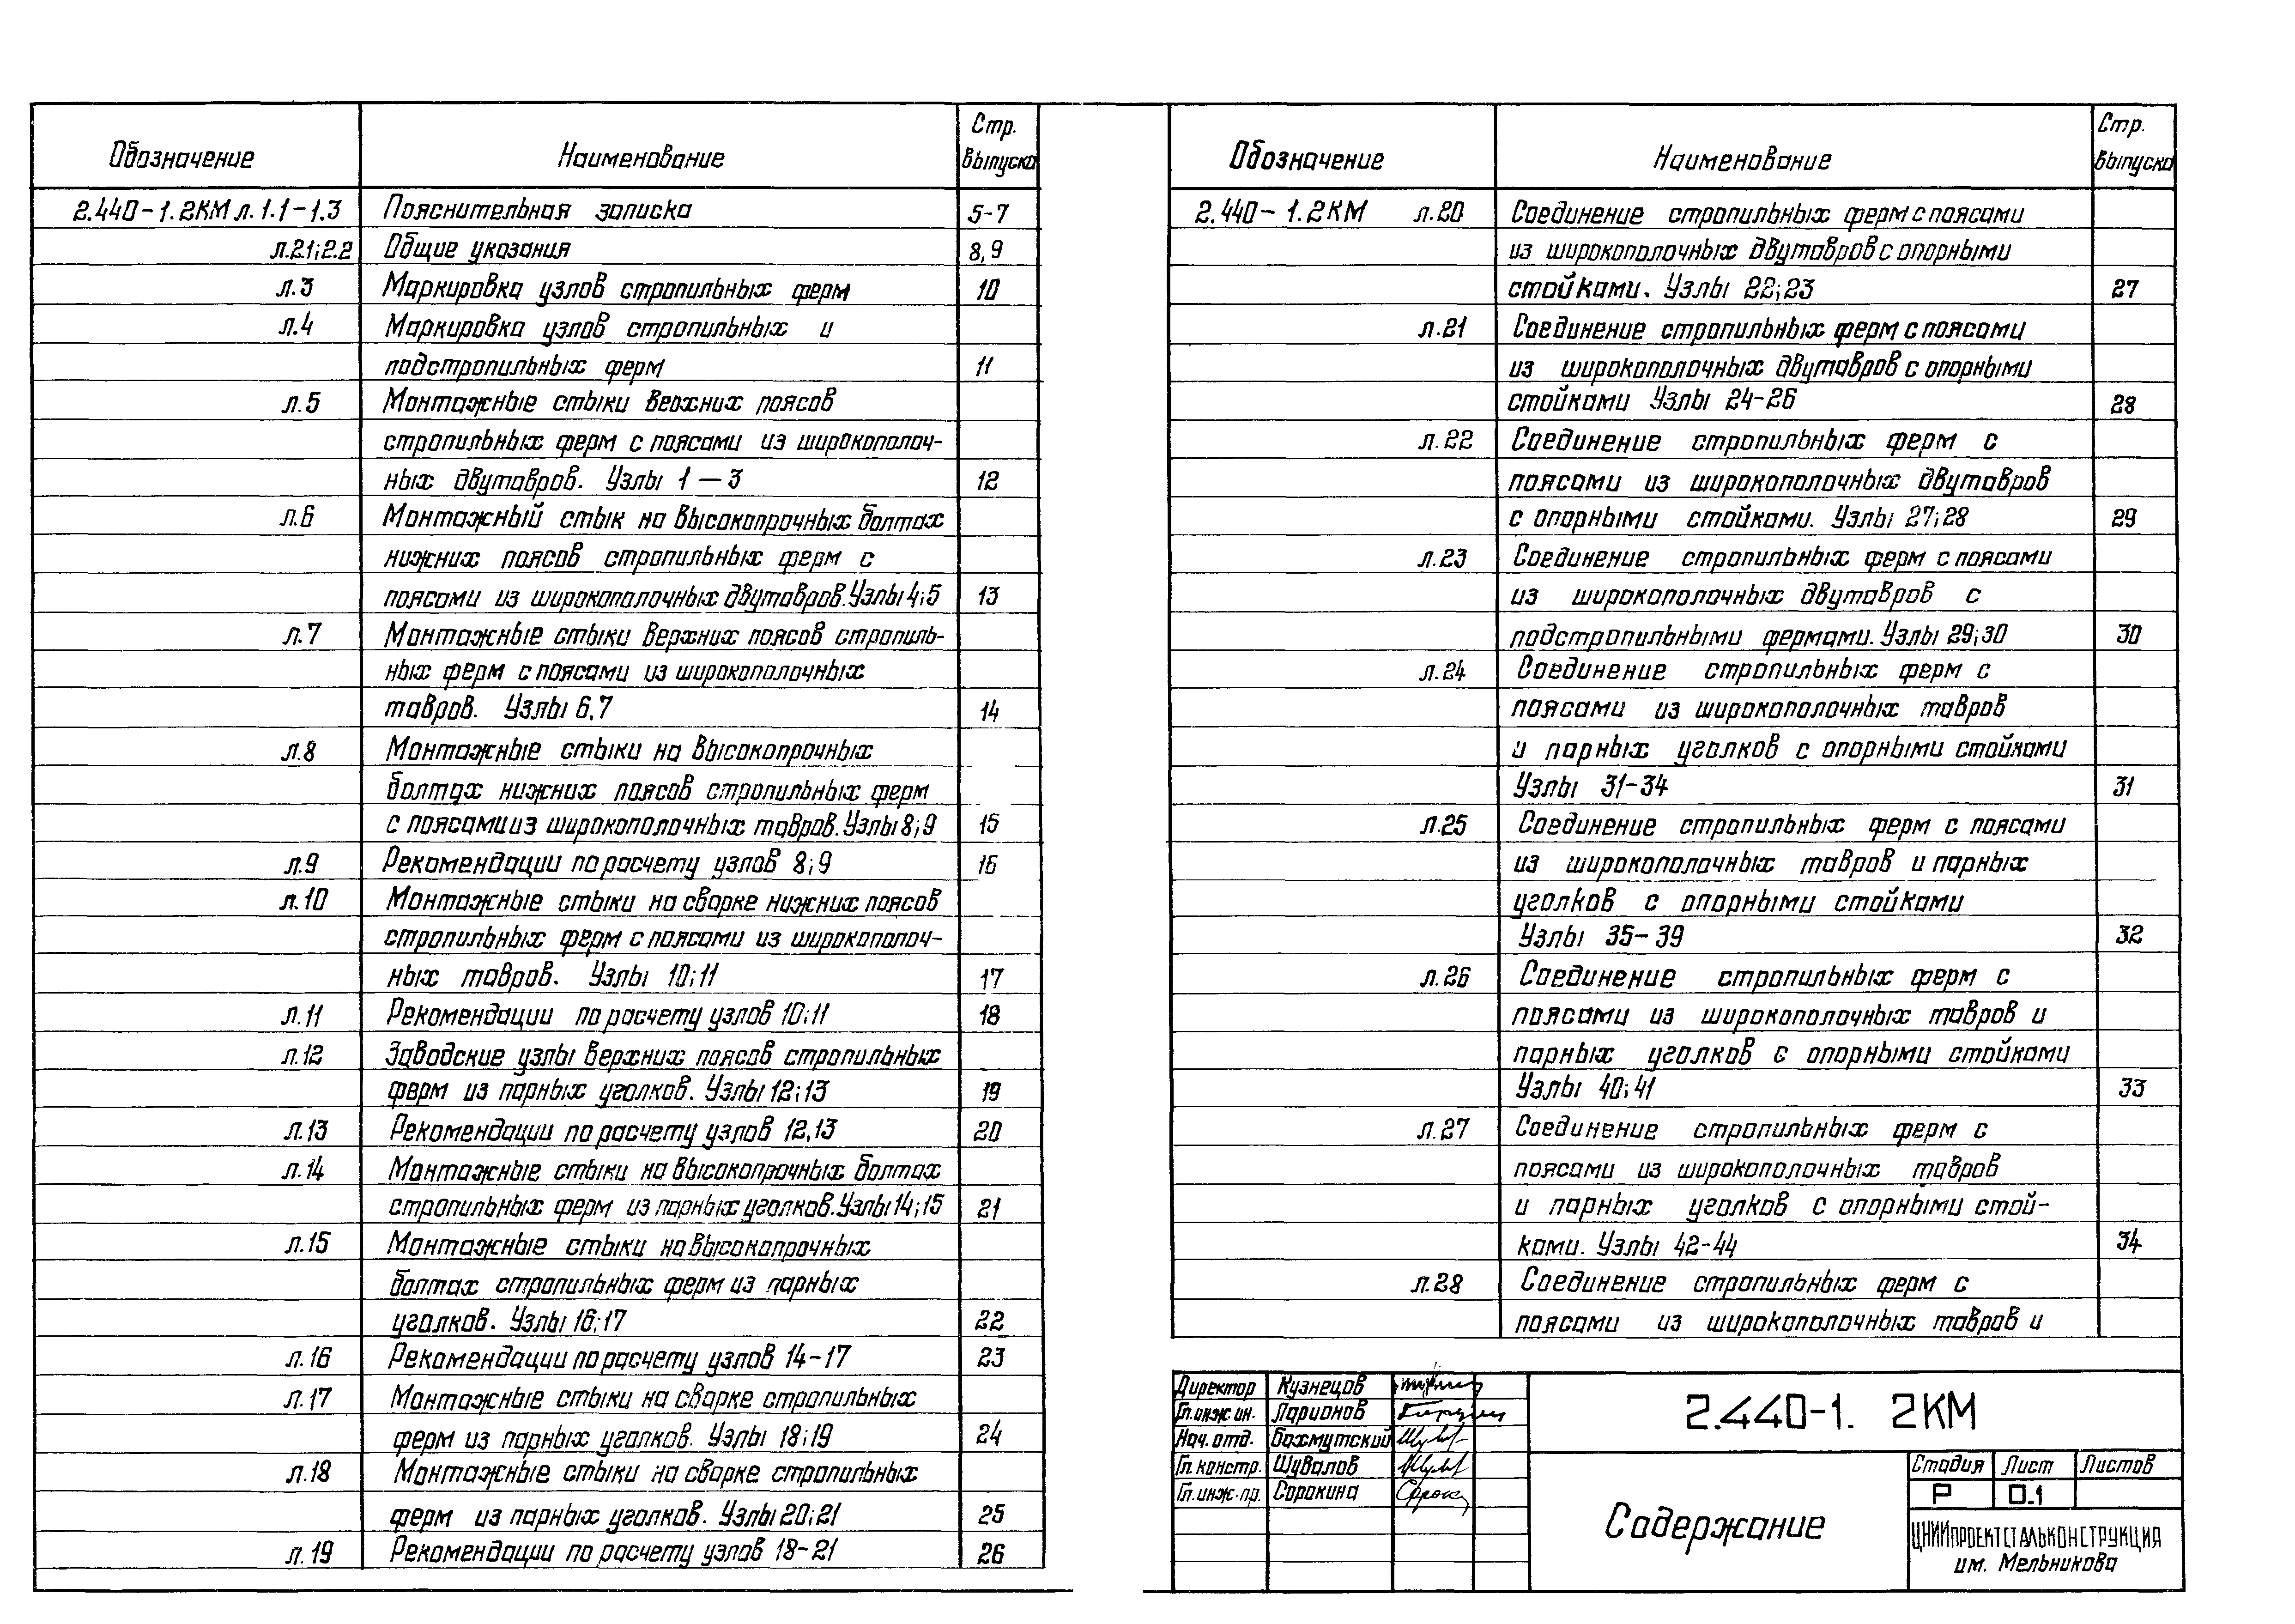 Обозначение Наименование Стр. выпуска
2.440-1.2КМ л. 1.1-1.3 Пояснительная записка 5-7
л.2.1;2.2 Общие указания 8,9
л.3 Маркировка узлов стропильных ферм 10
л.4 Маркировка узлов стропильных и
подстропильных ферм 11
л.5 Монтажные стыки верхних поясов
стропильных ферм с поясами из широкополоч-
ных двутавров. Узлы 1-3 12
л.6 Монтажный стык на высокопрочных болтах
нижних поясов стропильных ферм с
поясами из широкополочных двутавров. Узлы 4;5 13
л.7 Монтажные стыки верхних поясов стропиль-
ных ферм с поясами из широкополочных
тавров. Узлы 6,7 14
л.8 Монтажные стыки на высокопрочных
болтах нижних поясов стропильных ферм
с поясами из широкополочных тавров. Узлы 8;9 15
л.9 Рекомендации по расчету узлов 8;9 16
л.10 Монтажные стыки на сварке нижних поясов
стропильных ферм с поясами из широкополоч-
ных тавров. Узлы 10;11 17
л.11 Рекомендации по расчету узлов 10;11 18
л.12 Заводские узлы верхних поясов стропильных
ферм из парных уголков. Узлы 12;13 19
л.13 Рекомендации по расчету узлов 12,13 20
л.14 Монтажные стыки на высокопрочных болтах
стропильных ферм из парных уголков. Узлы 14;15 21
л.15 Монтажные стыки на высокопрочных
болтах стропильных ферм из парных
уголков. Узлы 16;17 22
л.16 Рекомендации по расчету узлов 14-17 23
л.17 Монтажные стыки на сварке стропильных
ферм из парных уголков. Узлы 18;19 24
л.18 Монтажные стыки на сварке стропильных
ферм из парных уголков. Узлы 20;21 25
л.19 Рекомендации по расчету узлов 18-21 26
Обозначение Наименование Стр. выпуска
2.440-1.2КМ л.20 Соединение стропильных ферм с поясами
из широкополочных двутавров с опорными
стойками. Узлы 22;23 27
л.21 Соединение стропильных ферм с поясами
из широкополочных двутавров с опорными
стойками Узлы 24-26 28
л.22 Соединение стропильных ферм с
поясами из широкополочных двутавров
с опорными стойками. Узлы 27;28 29
л.23 Соединение стропильных ферм с поясами
из широкополочных двутавров с
подстропильными фермами. Узлы 29;30 30
л.24 Соединение стропильных ферм с
поясами из широкополочных тавров
и парных уголков с опорными стойками
Узлы 31-34 31
л.25 Соединение стропильных ферм с поясами
из широкополочных тавров и парных
уголков с опорными стойками
Узлы 35-39 32
л.26 Соединение стропильных ферм с
поясами из широкополочных тавров и
парных уголков с опорными стойками
Узлы 40;41 33
л.27 Соединение стропильных ферм с
поясами из широкополочных тавров
и парных уголков с опорными стой-
ками. Узлы 42-44 34
л.28 Соединение стропильных ферм с
поясами из широкополочных тавров и
Директор Кузнецов
Гл.инж.ин. Ларионов
Нач. отд. Бахмутский
Гл. констр. Шувалов
Гл. инж. пр. Сорокина
2.440-1. 2КМ
Содержание
Стадия Лист Листов
Р 0.1
ЦНИИПРОЕКТСТАЛЬКОНСТРУКЦИЯ
им. Мельникова